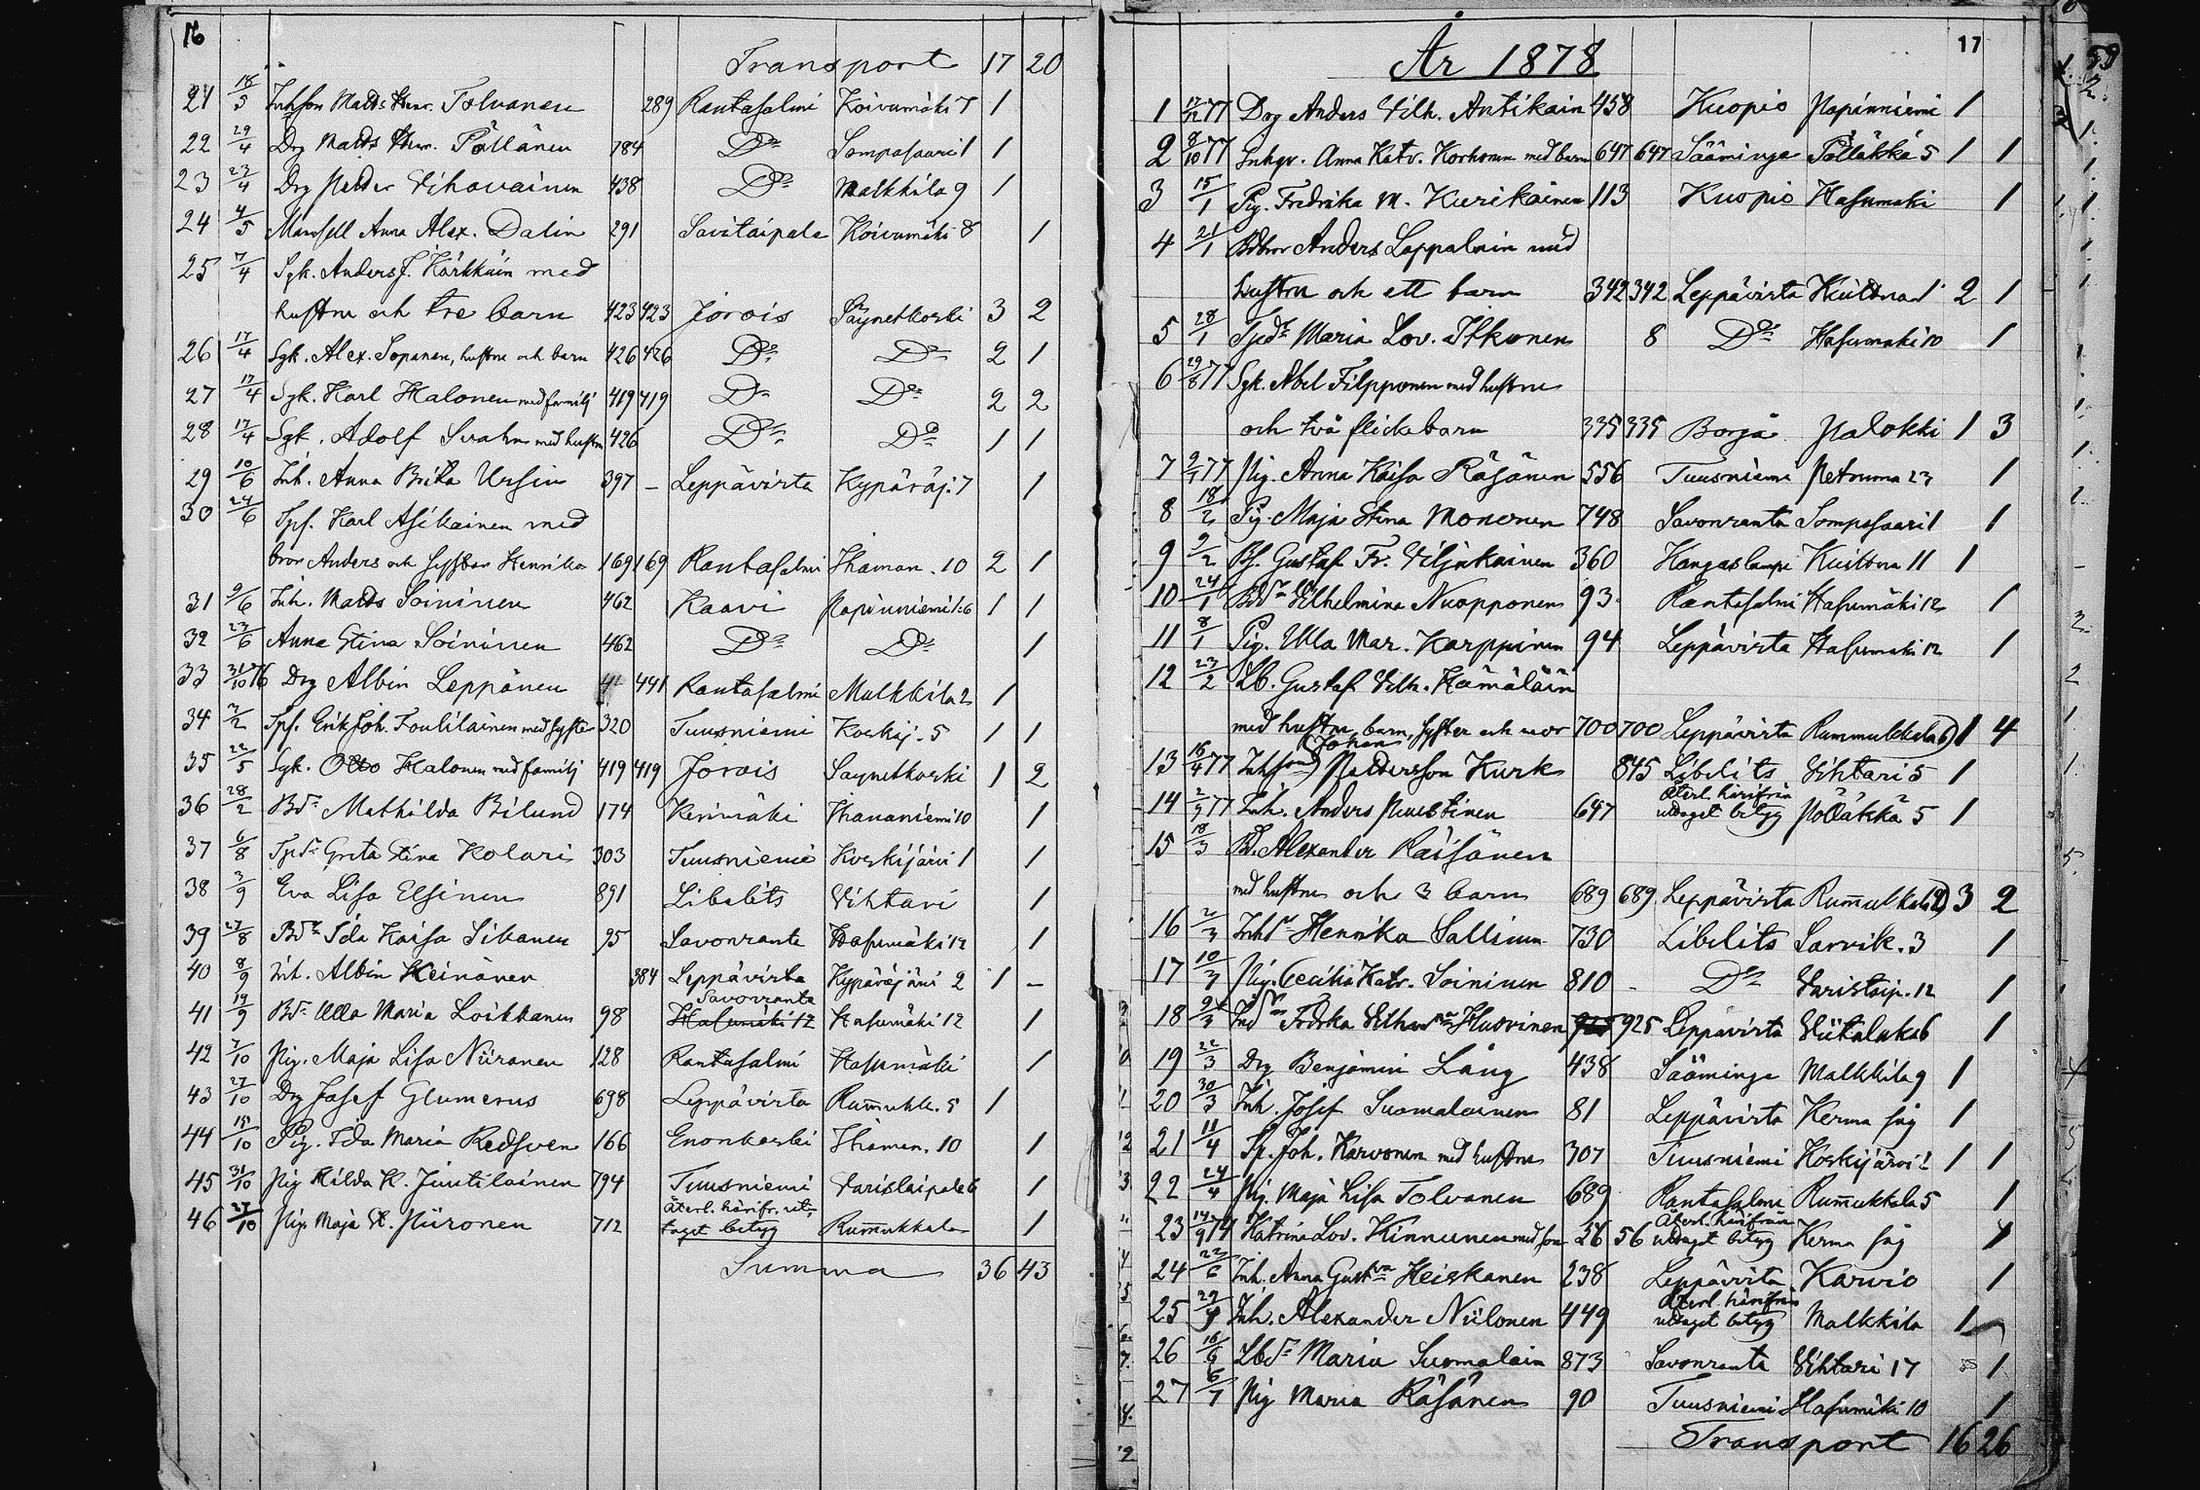 16
Transport 17 20
21 18/3 Inhson Matts Henr. Tolvanen 289 Rantasalmi Koivumäki 7 1
22 29/4 Drg Matts Henr. Pöllänen 784 Do Sompasaari 1 1
23 23/4 Drg Petter Vihavainen 438 Do Malkkila 9 1
24 4/5 Mamsell Anna Alex. Dalin 291 Savitaipale Koivumäki 8 1
25 7/4 Sgk. Anders J. Kärkkäin med
hustru och tre barn 423 423 Jorois Säynetkoski 3 2
26 17/4 Sgk. Alex. Sopanen, hustru och barn 426 426 Do Do 2 1
27 17/4 Sgk. Karl Halonen med familj 419 419 Do Do 2 2
28 17/4 Sgk. Adolf Svahn med hustru 426 Do Do 1 1
29 10/6 Inh. Anna Brita Ursin 397 – Leppävirta Kypäräj. 7 1
30 24/6 Spf. Karl Asikainen med
bror Anders och syster Henrika 169 169 Rantasalmi Ihaman. 10 2 1
31 9/6 Inh. Matts Soininen 462 Kaavi Papinniemi 6 1 1
32 23/6 Anna Stina Soininen 462 Do Do 1
33 31/10 76 Drg Albin Leppänen 441 Rantasalmi Malkkila 2 1
34 2/2 Spf. Erik Joh. Toulilainen med syster 320 Tuusniemi Koskij. 5 1 1
35 22/5 Sgk. Otto Halonen med familj 419 419 Jorois Säynetkoski 1 2
36 28/2 Bdr Mathilda Bilund 174 Kerimäki Ihananiemi 10 1
37 6/8 Spdr Greta Stina Kolari 303 Tuusniemi Koskijärvi 1 1
38 3/9 Eva Lisa Elsinen 891 Libelits Vihtari 1
39 27/8 Bdr Ida Kaisa Sikanen 95 Savonranta Hasumäki 12 1
40 8/9 Inh. Albin Heinänen 384 Leppävirta Kypäräjärvi 2 1 –
41 19/9 Bdr Ulla Maria Loikkanen 98 Savonranta Hasumäki 12 Hasumäki 12 1
42 7/10 Pig. Maja Lisa Niiranen 128 Rantasalmi Hasumäki 1
43 27/10 Drg Josef Glumerus 698 Leppävirta Rum̄ukk. 5 1
44 15/10 Pig. Ida Maria Redsven 166 Enonkoski Ihaman. 10 1
45 31/10 Pig Hilda K. Juutilainen 794 Tuusniemi Varislaipale 6 1
46 27/10 Pig. Maja K. Piironen 712 återl. härifr. ut-
taget betyg Rum̄ukkala 1
Summa 36 43
17
År 1878
1 17/12 77 Drg Anders Vilh. Antikain 458 Kuopio Papinniemi 1
2 8/10 77 Inhqv. Anna Katr. Korhonen med barn 647 647 Sääminge Pölläkkä 5 1 1
3 15/1 Pig. Fredrika M. Kurikainen 113 Kuopio Hasumäki 1
4 21/1 Anders Lappalain med
hustru och ett barn 342 342 Leppävirta Kuittua 1 2 1
5 28/1 Maria Lov. Itkonen 8 Do Hasumäki 10 1
6 29/8 77 Sgk. Abel Filpponen med hustru
och två flickebarn 335 335 Borgå Palokki 1 3
7 77 Pig. Anna Kaisa Räsänen 556 Tuusniemi Petruma 23 1
8 18/2 Pig. Maja Stina Mononen 748 Savonranta Sompasaari 1 1
9 9/2 Bf. Gustaf Fr. Viljakainen 360 Kangaslampi Kuittua 11 1 –
10 24/1 Bdr Vilhelmina Nuopponen 93 Rantasalmi Hasumäki 12 1
11 8/1 Pig. Ulla Mar. Karppinen 94 Leppävirta Hasumäki 12 1
12 23/2 Lb. Gustaf Vilh. Hämäläin
med hustru, barn, syster och mor 700 700 Leppävirta Rummukkala 6 1 4
13 16/4 77 Inhson Johan Pettersson Kurk 845 Libelits Vihtari 5 1
14 2/9 77 Inh. Anders Puustinen 647 återl. härifrån
uttaget betyg Pölläkkä 5 1
15 18/3 Bd. Alexander Räisänen
med hustru och 3 barn 689 689 Leppävirta Rum̄ukkala 3 2
16 2/3 Inhdr Henrika Sallinen 730 Libelits Sarvik. 3 1
17 10/3 Pig. Cecilia Katr. Soininen 810 – Do Varistaip. 12 1
18 9/3 Husvinen 925 Leppävirta Viitalaks 6 1
19 22/3 Drg Benjamin Lång 438 Sääminge Malkkila 9 1
20 30/3 Inh. Josef Suomalainen 81 Leppävirta Kerma såg 1
21 11/4 Sp. Joh. Karvonen med hustru 307 Tuusniemi Koskijärvi 2 1 1
22 24/4 Pig. Maja Lisa Tolvanen 689 Rantasalmi Rum̄ukkala 5 1
23 14/9 74 Katrina Lov. Kinnunen med son 56 56 återl. härifrån
uttaget betyg Kerma såg 1
24 22/6 Inh. Anna Gustva Heiskanen 238 Leppävirta Karvio 1
25 29/9 Inh. Alexander Niilonen 449 återl. härifrån
uttaget betyg Malkkila 1
26 16/6 Lbdr Maria Suomalain 873 Savonranta Vihtari 17 1
27 6/7 Pig Maria Räsänen 90 Tuusniemi Hasumäki 10 1
Transport 16 26